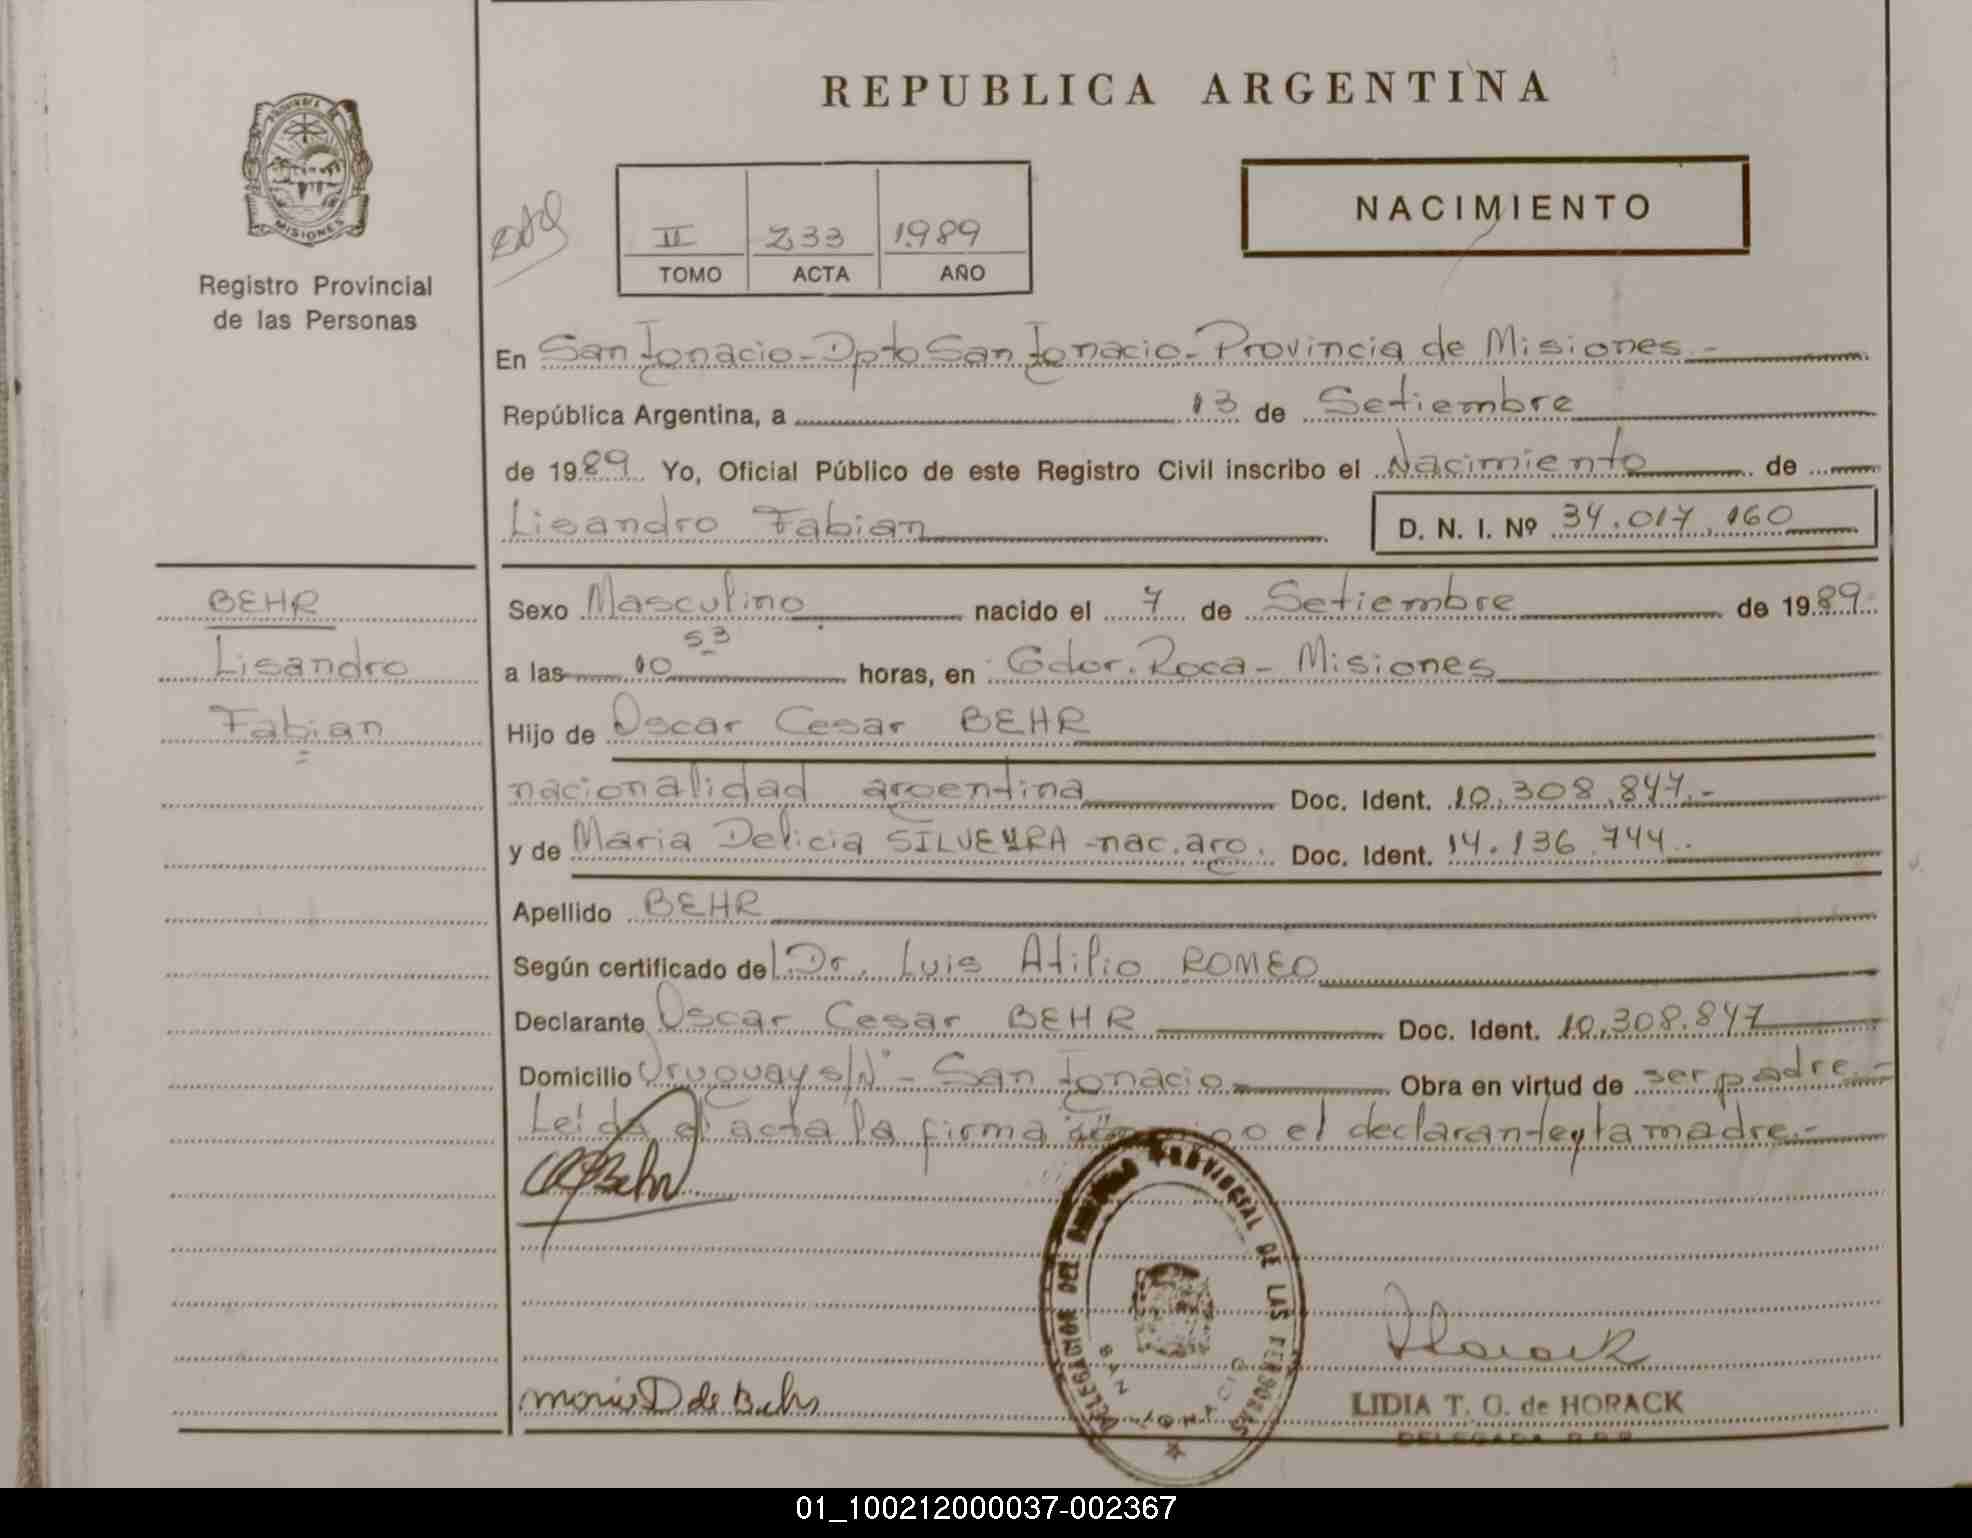 REPUBLICA ARGENTINA
PROVINCIA DE
MISIONES
Registro Provincial
de las Personas
II 233 1989
TOMO ACTA AÑO
NACIMIENTO
En San Ignacio - Dpto San Ignacio - Provincia de Misiones.-
República Argentina, a 13 de Setiembre
de 1989 Yo, Oficial Público de este Registro Civil inscribo el Nacimiento de
Lisandro Fabian D. N. I. Nº 34.017.160
BEHR
Lisandro
Fabian
Sexo Masculino nacido el 7 de Setiembre de 1989
a las 10 53 horas, en Gdor. Roca - Misiones
Hijo de Oscar Cesar BEHR
nacionalidad argentina Doc. Ident. 10.308.847.-
y de Maria Delicia SILVEYRA - nac. arg. Doc. Ident. 14.136.744.
Apellido BEHR
Según certificado del Dr. Luis Atilio ROMEO
Declarante Oscar Cesar BEHR Doc. Ident. 10.308.847
Domicilio Uruguay s/Nº - San Ignacio Obra en virtud de ser padre.-
Leida el acta la firma el declarante y la madre.-
Maria D de Behr
DELEGACION DEL REGISTRO PROVINCIAL DE LAS PERSONAS
SAN IGNACIO
Horack
LIDIA T. O. de HORACK
DELEGADA R.P.P.
01_100212000037-002367